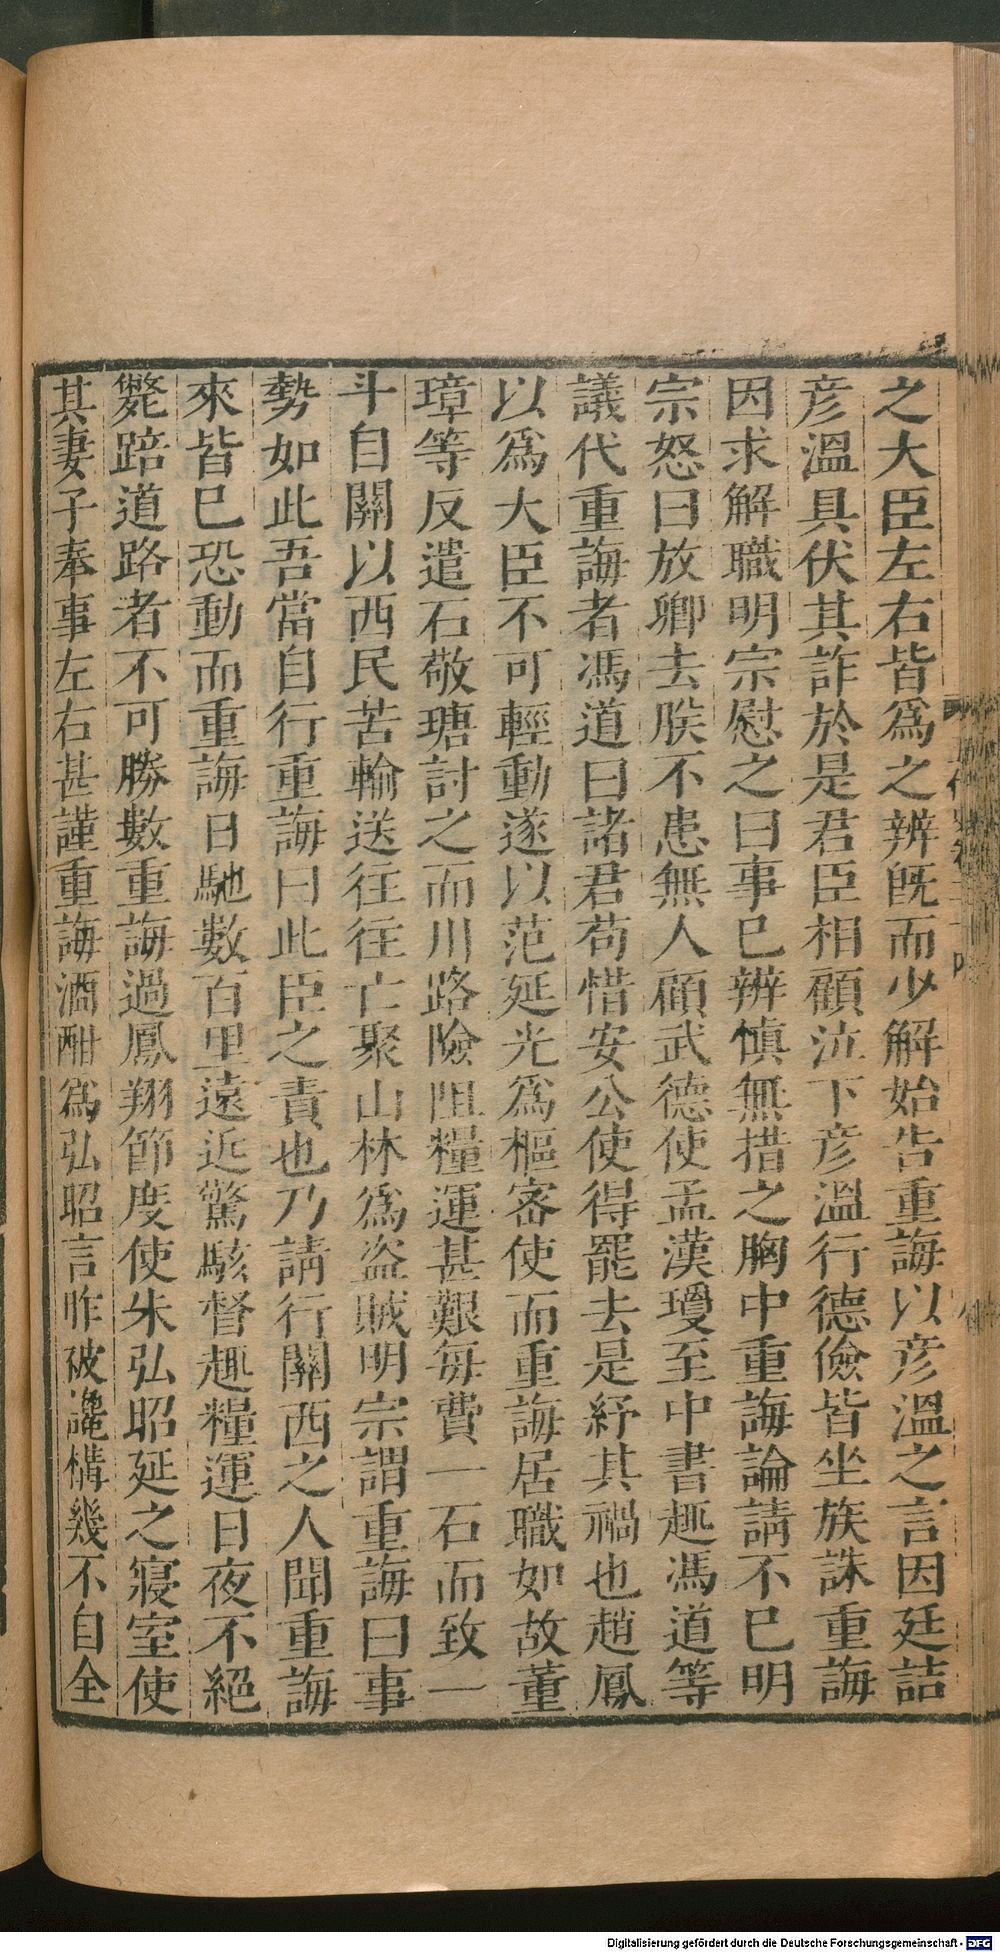 之大臣左右皆爲之辨既而少解始告重誨以彦溫之言因廷詰
彦溫具伏其詐於是君臣相顧泣下彦溫行德儉皆坐族誅重誨
因求解職明宗慰之曰事已辨慎無措之胸中重誨論請不已明
宗怒曰放卿去朕不患無人顧武德使孟漢瓊至中書趣馮道等
議代重誨者馮道曰諸君苟惜安公使得罷去是紓其禍也趙鳳
以爲大臣不可輕動遂以范延光爲樞密使而重誨居職如故董
璋等反遣石敬瑭討之而川路險阻糧運甚艱每費一石而致一
斗自關以西民苦輸送往往亡聚山林爲盗賊明宗謂重誨曰事
勢如此吾當自行重誨曰此臣之責也乃請行關西之人聞重誨
來皆已恐動而重誨日馳數百里遠近驚駭督趣糧運日夜不絕
斃踣道路者不可勝數重誨過鳳翔節度使朱弘昭延之寢室使
其妻子奉事左右甚謹重誨酒酣爲弘昭言昨被讒構幾不自全
Digitalisierung gefördert durch die Deutsche Forschungsgemeinschaft - DFG